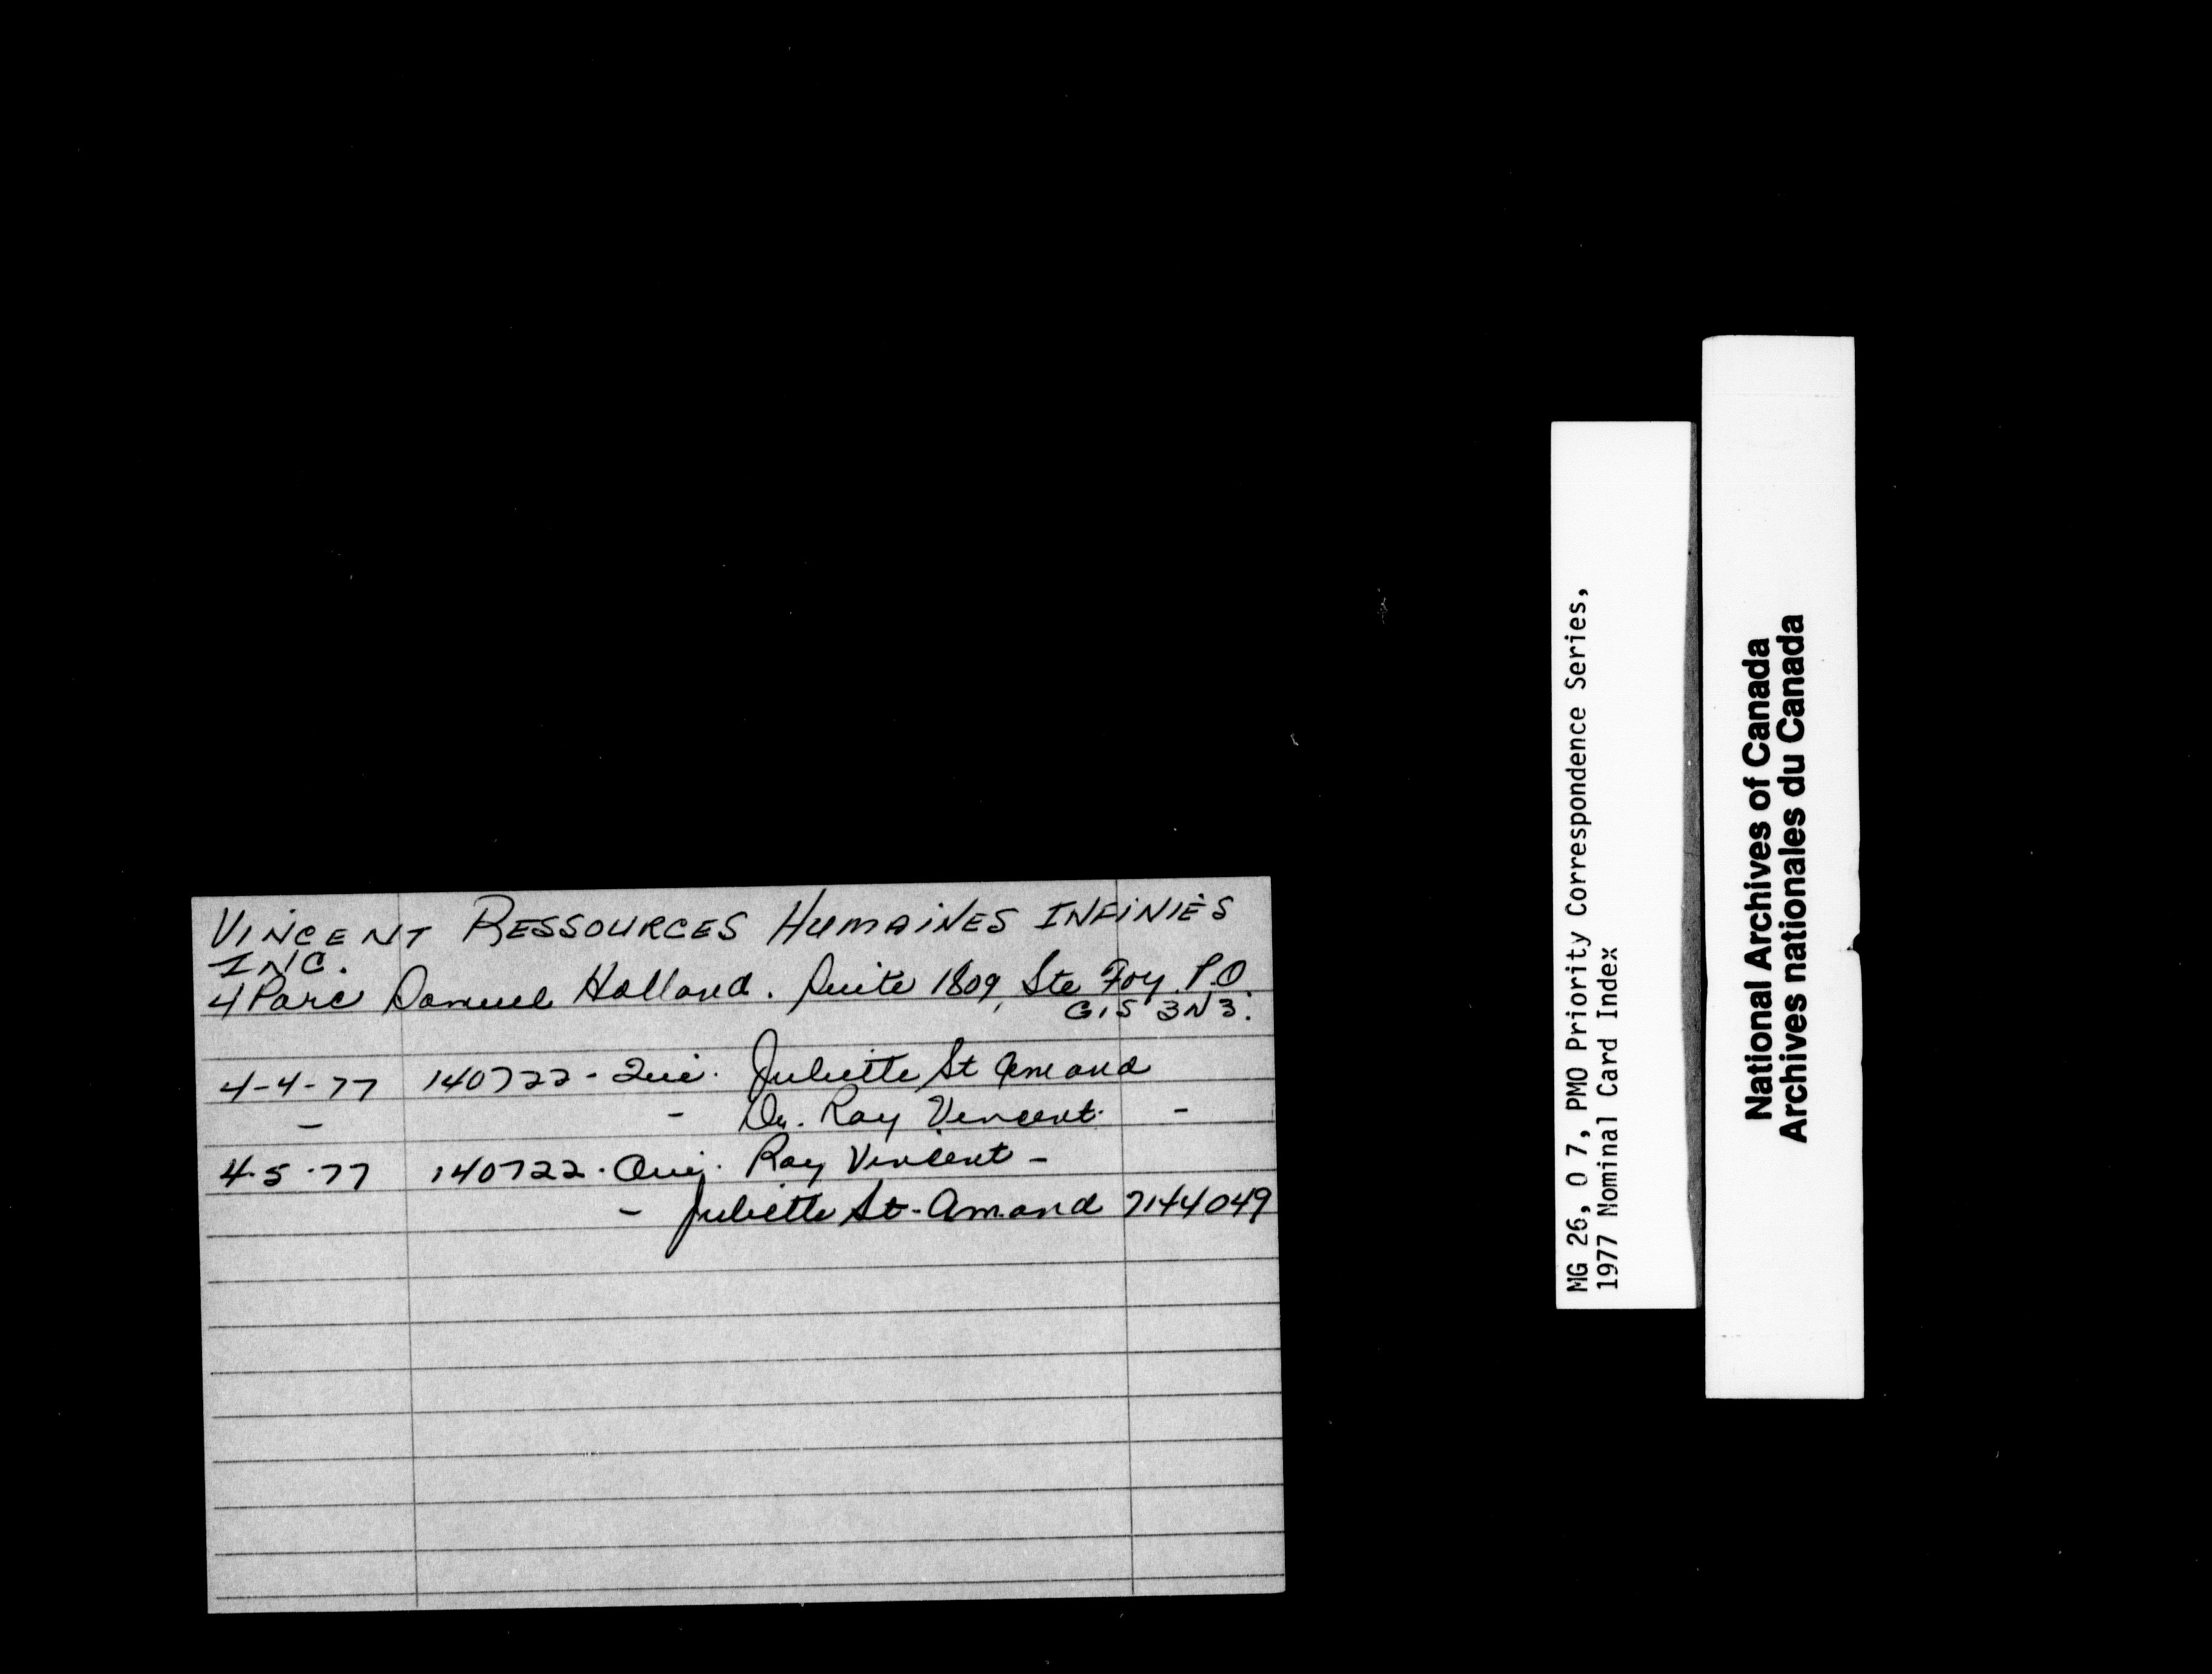 VINCENT RESSOURCES HUMAINES INFINIES
INC.
4 Parc Samuel Holland. Suite 1809, Ste Foy. P.Q.
G1S 3N3.
4-4-77 140722 - Juliette St Amand
- - Dr. Ray Vincent. -
4-5-77 140722. Ray Vincent -
- Juliette St-Amand 7144049
MG 26, O 7, PMO Priority Correspondence Series,
1977 Nominal Card Index
National Archives of Canada
Archives nationales du Canada